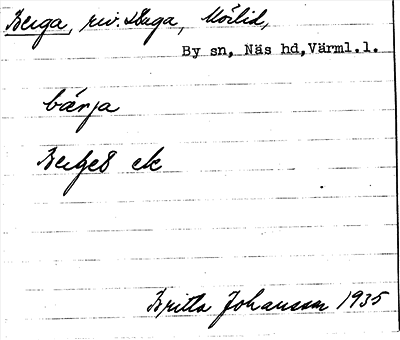 Berga, riv. Stuga, Mölid,
By sn, Näs hd, Värml.l.
bárja
ek
Britta Johansson 1935